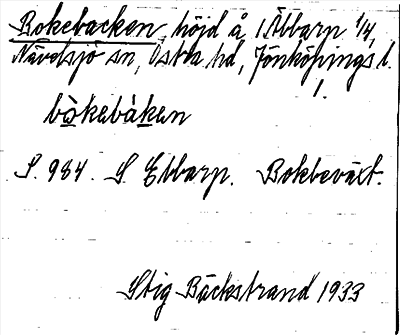 Bokebacken, höjd å 1 Äbbarp 1/4,
Nävelsjö sn, Östra hd, Jönköpings l.
1.
bòkebàken
S. 984. S. Ebbarp. Bokbeväxt.
Stig Bäckstrand 1933